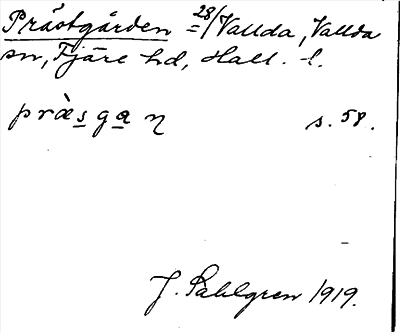 Prästgården = 28/ Vallda, Vallda
sn, Fjäre hd, Hall. l.
præ̀sgaɳ s. 58.
J. Sahlgren 1919.